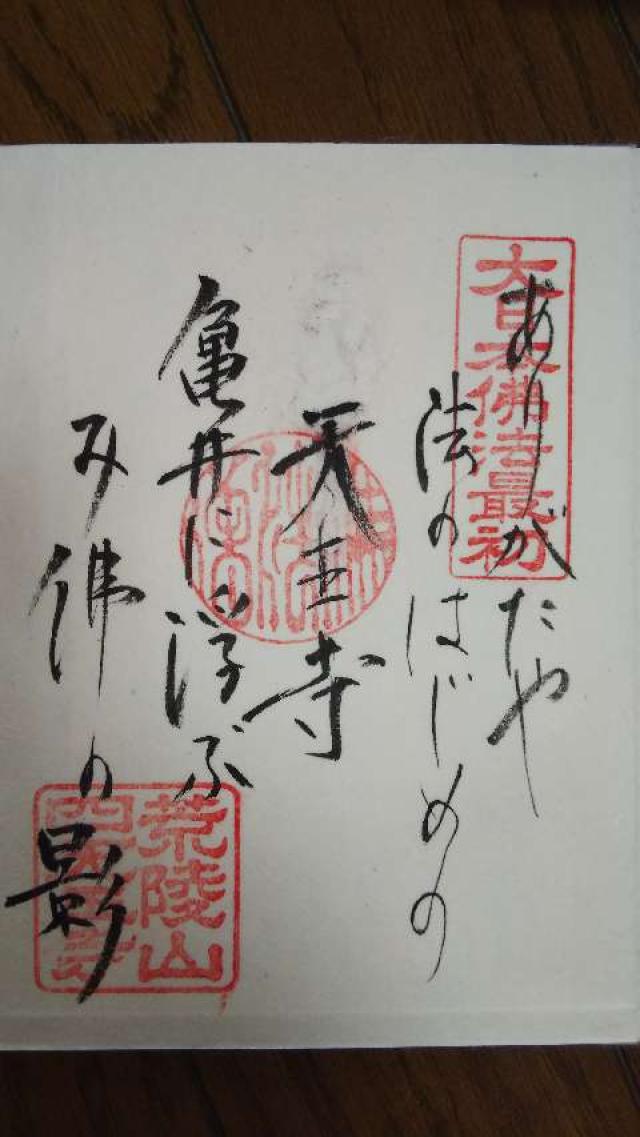 大日本佛法最初
ありがたや
法の はじめの
天王寺
亀井に浮ぶ
み佛の影
荒陵山
四天王寺